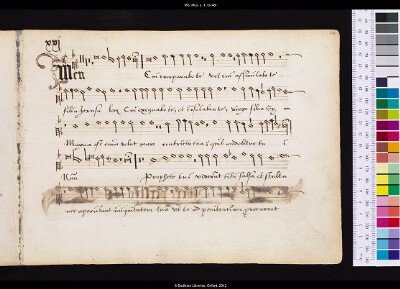 xvi
Mem Cui comparabo te vel cui assimilabo te
filia Jerusalem cui exequabo te et consolabor te virgo filia Sy on
Magna est enim velut mare contritio tua quis medebitur tu i
Nun Prophete tui viderunt tibi falsa et stulta
nec aperiebant iniquitatem tuam ut te ad penitentiam provocarent
© Bodleian Libraries, Oxford 2012